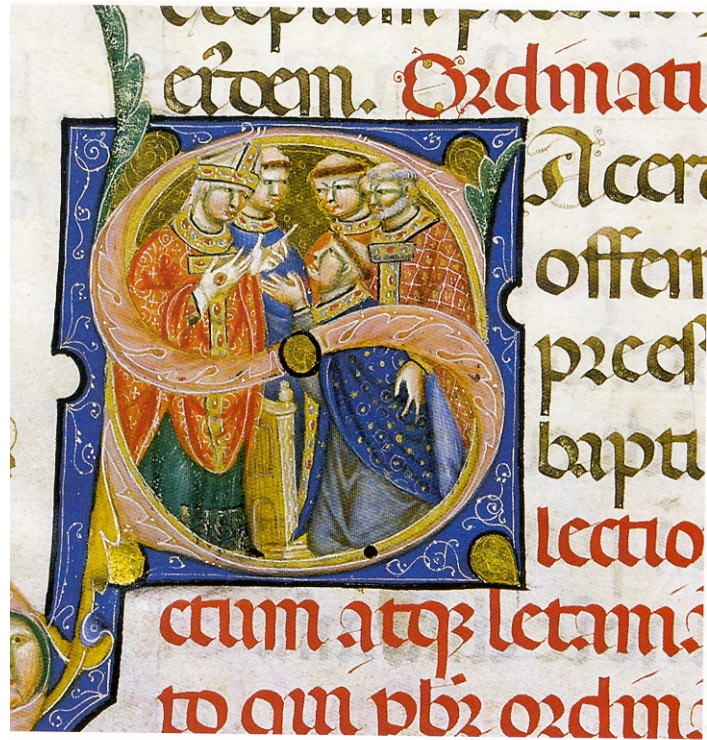 erdem. Ordinati
Acerd
offerr
preess
bapti
lectio
ctum atqz letani
to qui pbr ordin